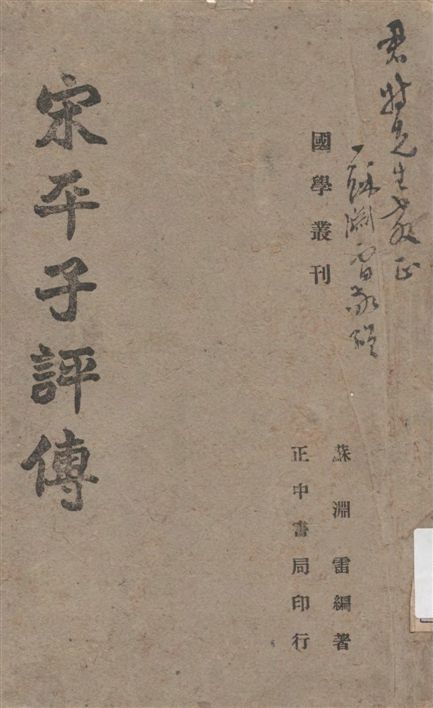 君特先生教正
蘇淵雷敬贈
國學叢刊
蘇淵雷編著
正中書局印行
宋平子評傳